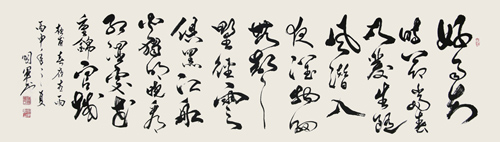 好雨知
時節當春
乃發生隨
風潛入
夜潤物細
無聲
野徑雲
俱黑江船
火獨明曉看
紅濕處花
重錦官城
杜甫春夜喜雨
丙申年之夏